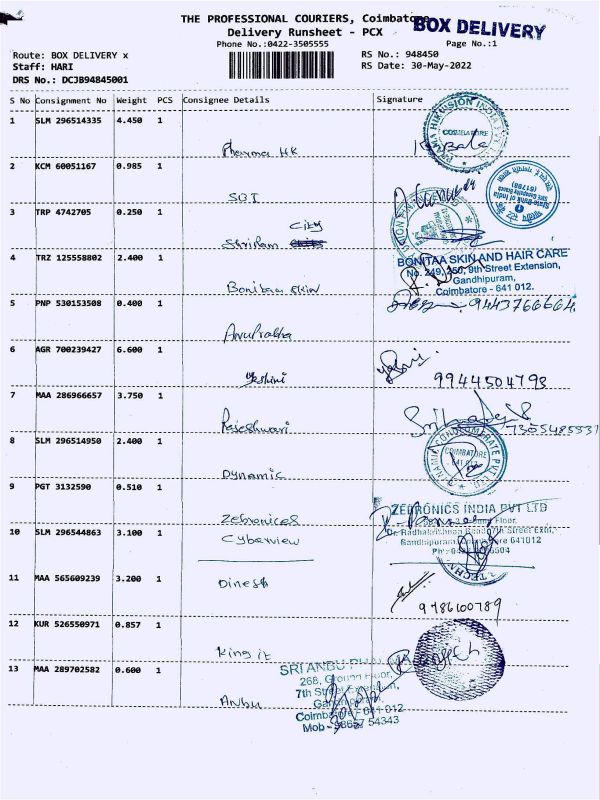 THE PROFESSIONAL COURIERS, Coimbatore
BOX DELIVERY
Delivery Runsheet - PCX
Phone No.:0422-3505555
Page No.:1
Route: BOX DELIVERY x
RS No.: 948450
Staff: HARI
RS Date: 30-May-2022
DRS No.: DCJB94845001
S No Consignment No Weight PCS Consignee Details Signature
1 SLM 296514335 4.450 1
Pharma HK
COIMBATORE
2 KCM 60051167 0.985 1
SBI
State Bank of India
3 TRP 4742705 0.250 1
City
Shriram
4 TRZ 125558802 2.400 1
Bonitaa Skin
BONITAA SKIN AND HAIR CARE
No. 249, 250, 9th Street Extension,
Gandhipuram,
Coimbatore - 641 012.
5 PNP 530153508 0.400 1
Anuprabha
9443766664
6 AGR 700239427 6.600 1
Yashini
9944504793
7 MAA 286966657 3.750 1
Rajeshwari
8 SLM 296514950 2.400 1
Dynamic
COIMBATORE
9 PGT 3132590 0.510 1
Zebronics
ZEBRONICS INDIA PVT LTD
10 SLM 296544863 3.100 1
Cyberview
11 MAA 565609239 3.200 1
Dinesh
9786100789
12 KUR 526550971 0.857 1
King it
13 MAA 289702582 0.600 1
Anbu
SRI ANBU
268, Ground Floor,
7th Street Extension,
Coimbatore - 641 012